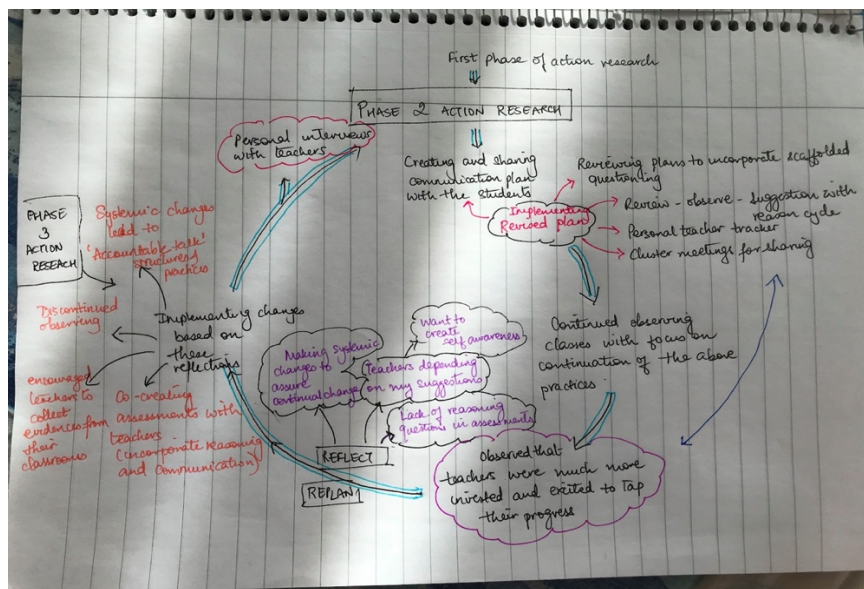 First phase of action research
PHASE 2 ACTION RESEARCH
Personal interviews
with teachers
Creating and sharing
communication plan
with the students
Implementing
Revised plan
Reviewing plans to incorporate scaffolded
questioning
Review - observe - suggestion with
reason cycle
Personal teacher tracker
Cluster meetings for sharing
Continued observing
classes with focus on
continuation of the above
practices
Observed that
teachers were much more
invested and excited to tap
their progress
REFLECT
REPLAN
Want to
create
self awareness
Teachers depending
on my suggestions
Making systemic
changes to
assure
continual change
Lack of reasoning
questions in assessments
Implementing changes
based on
these
reflections
PHASE
3
ACTION
RESEACH
Systemic changes
lead to
'Accountable talk'
structures/
practices
Discontinued
observing
encouraged
teachers to
collect
evidences from
their
classrooms
Co-creating
assessments with
teachers
(incorporate reasoning
and communication)